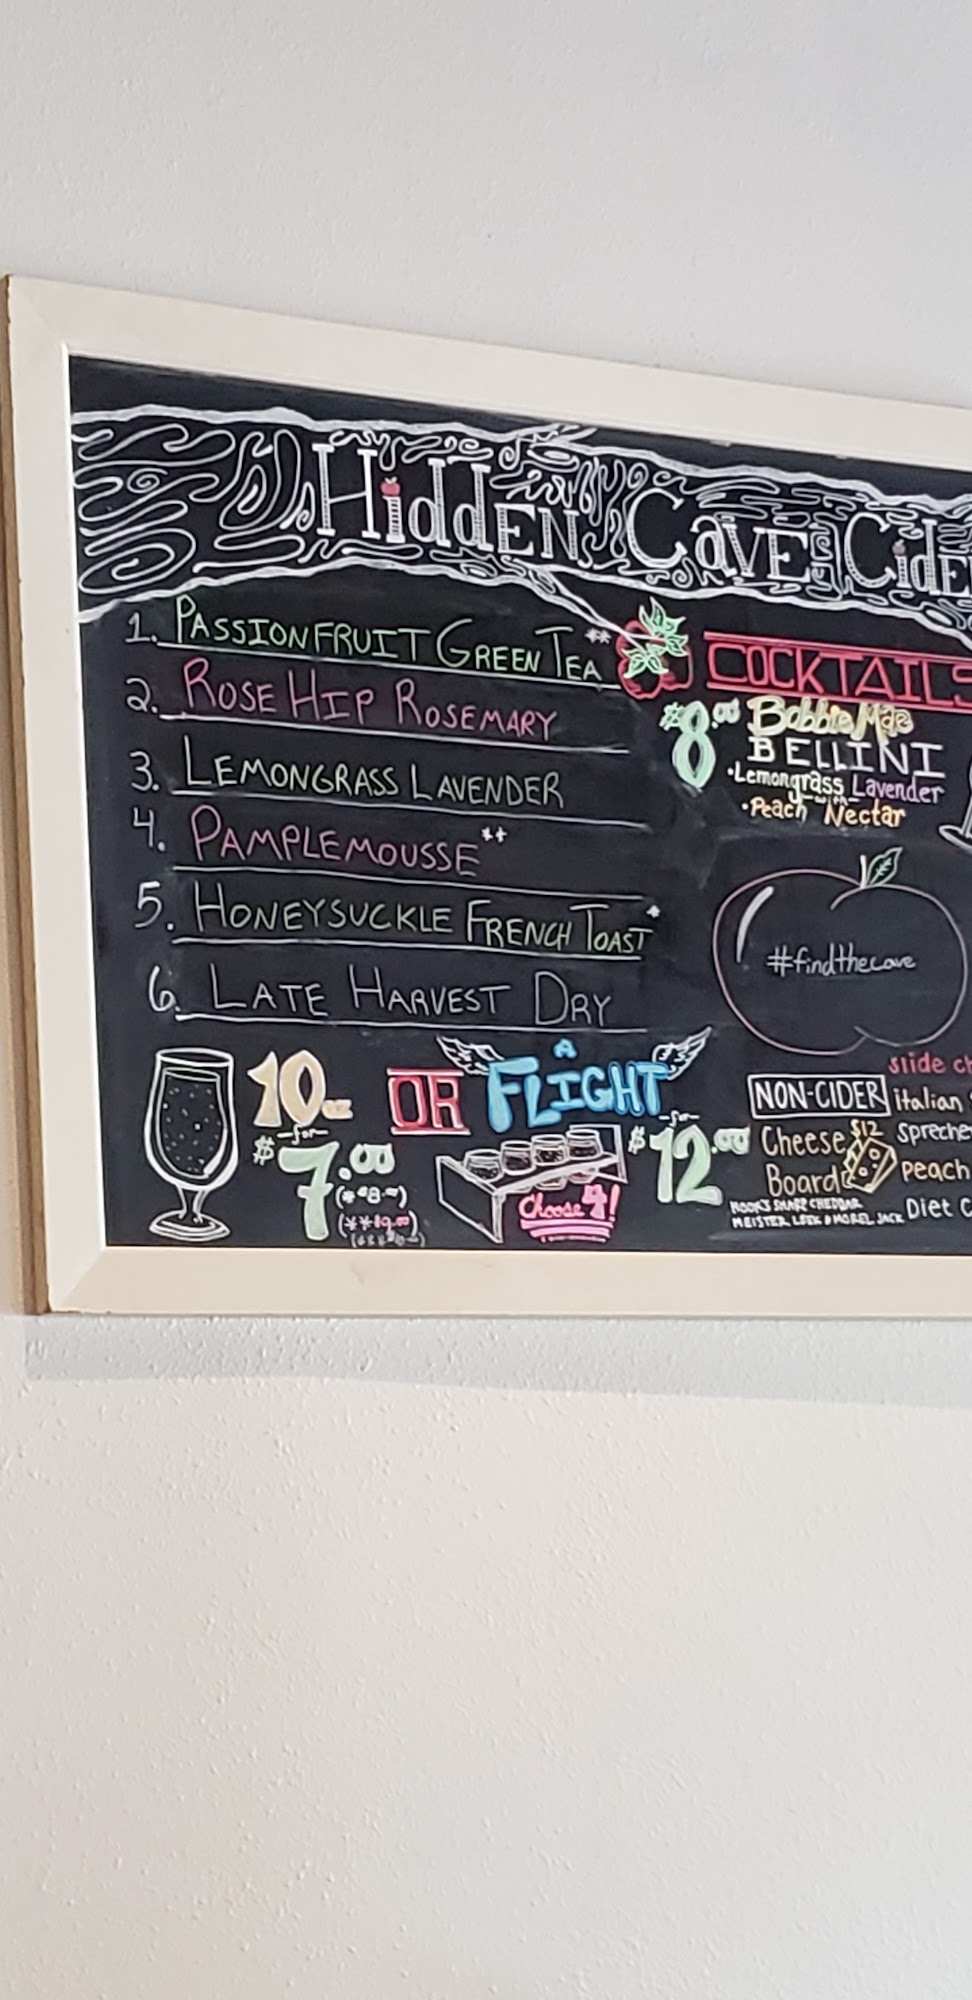 Hidden Cave Cide
1. Passionfruit Green Tea **
2. Rose Hip Rosemary
3. Lemongrass Lavender
4. Pamplemousse **
5. Honeysuckle French Toast *
6. Late Harvest Dry
10oz
-for-
$7.00
(*8.00)
(**9.00)
OR
A
FLIGHT
-for-
$12.00
Choose 4!
COCKTAILS
$8.00 Bobbie Mae
BELLINI
•Lemongrass Lavender
-with-
•Peach Nectar
#findthecave
NON-CIDER
Cheese $12
Board
HOOK'S SHARP CHEDDAR
MEISTER LEEK & MOREL JACK
slide ch
italian
spreche
peach
Diet C